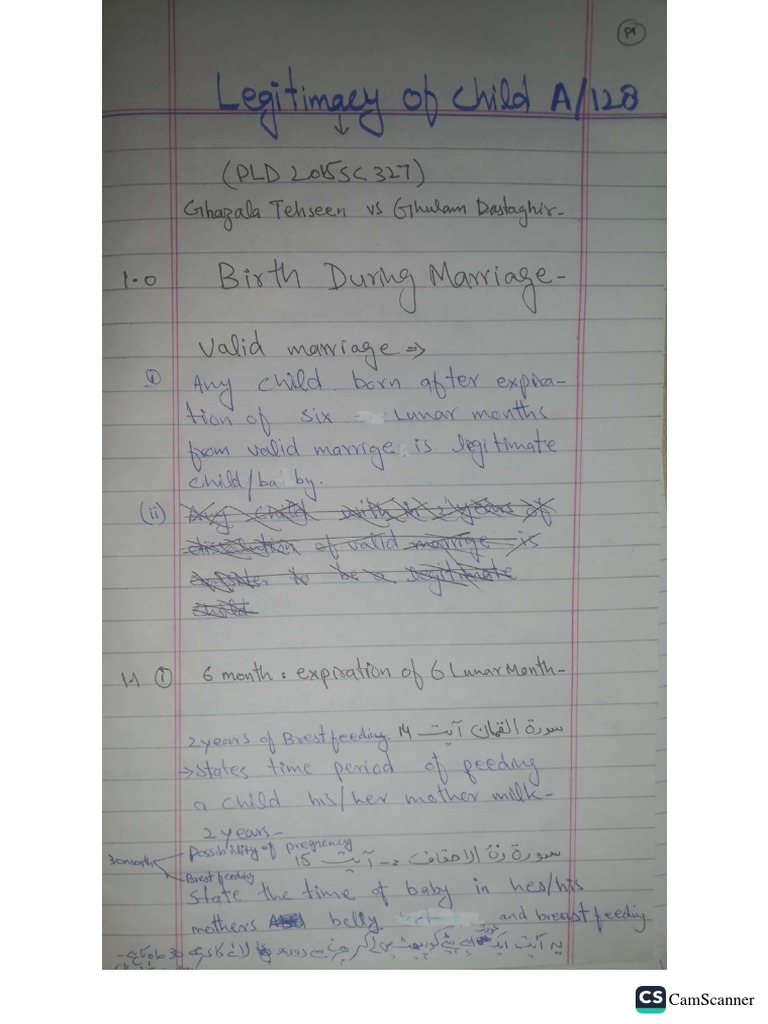 P1
Legitimacy of Child A/128
(PLD 2015 SC 327)
Ghazala Tehseen vs Ghulam Dastaghir-
1.0 Birth During Marriage-
Valid marriage ⇒
(i) Any child born after expira-
tion of six Lunar months
from valid marrige is legitimate
child/baby.
(ii) Any child with in 2 years of
of valid marrige is
to be a legitimate
child
1.1 (i) 6 month : expiration of 6 Lunar Month-
2 years of Brestfeeding. سورة القمان آیت 14
→ States time period of feeding
a child his/her mother milk-
2 years-
Possibility of pregnency
30 month سورة الاحقاف 2- آیت 15
Brest feeding
State the time of baby in hes/his
mothers belly and breast feeding
یہ آیت ایک
CS CamScanner